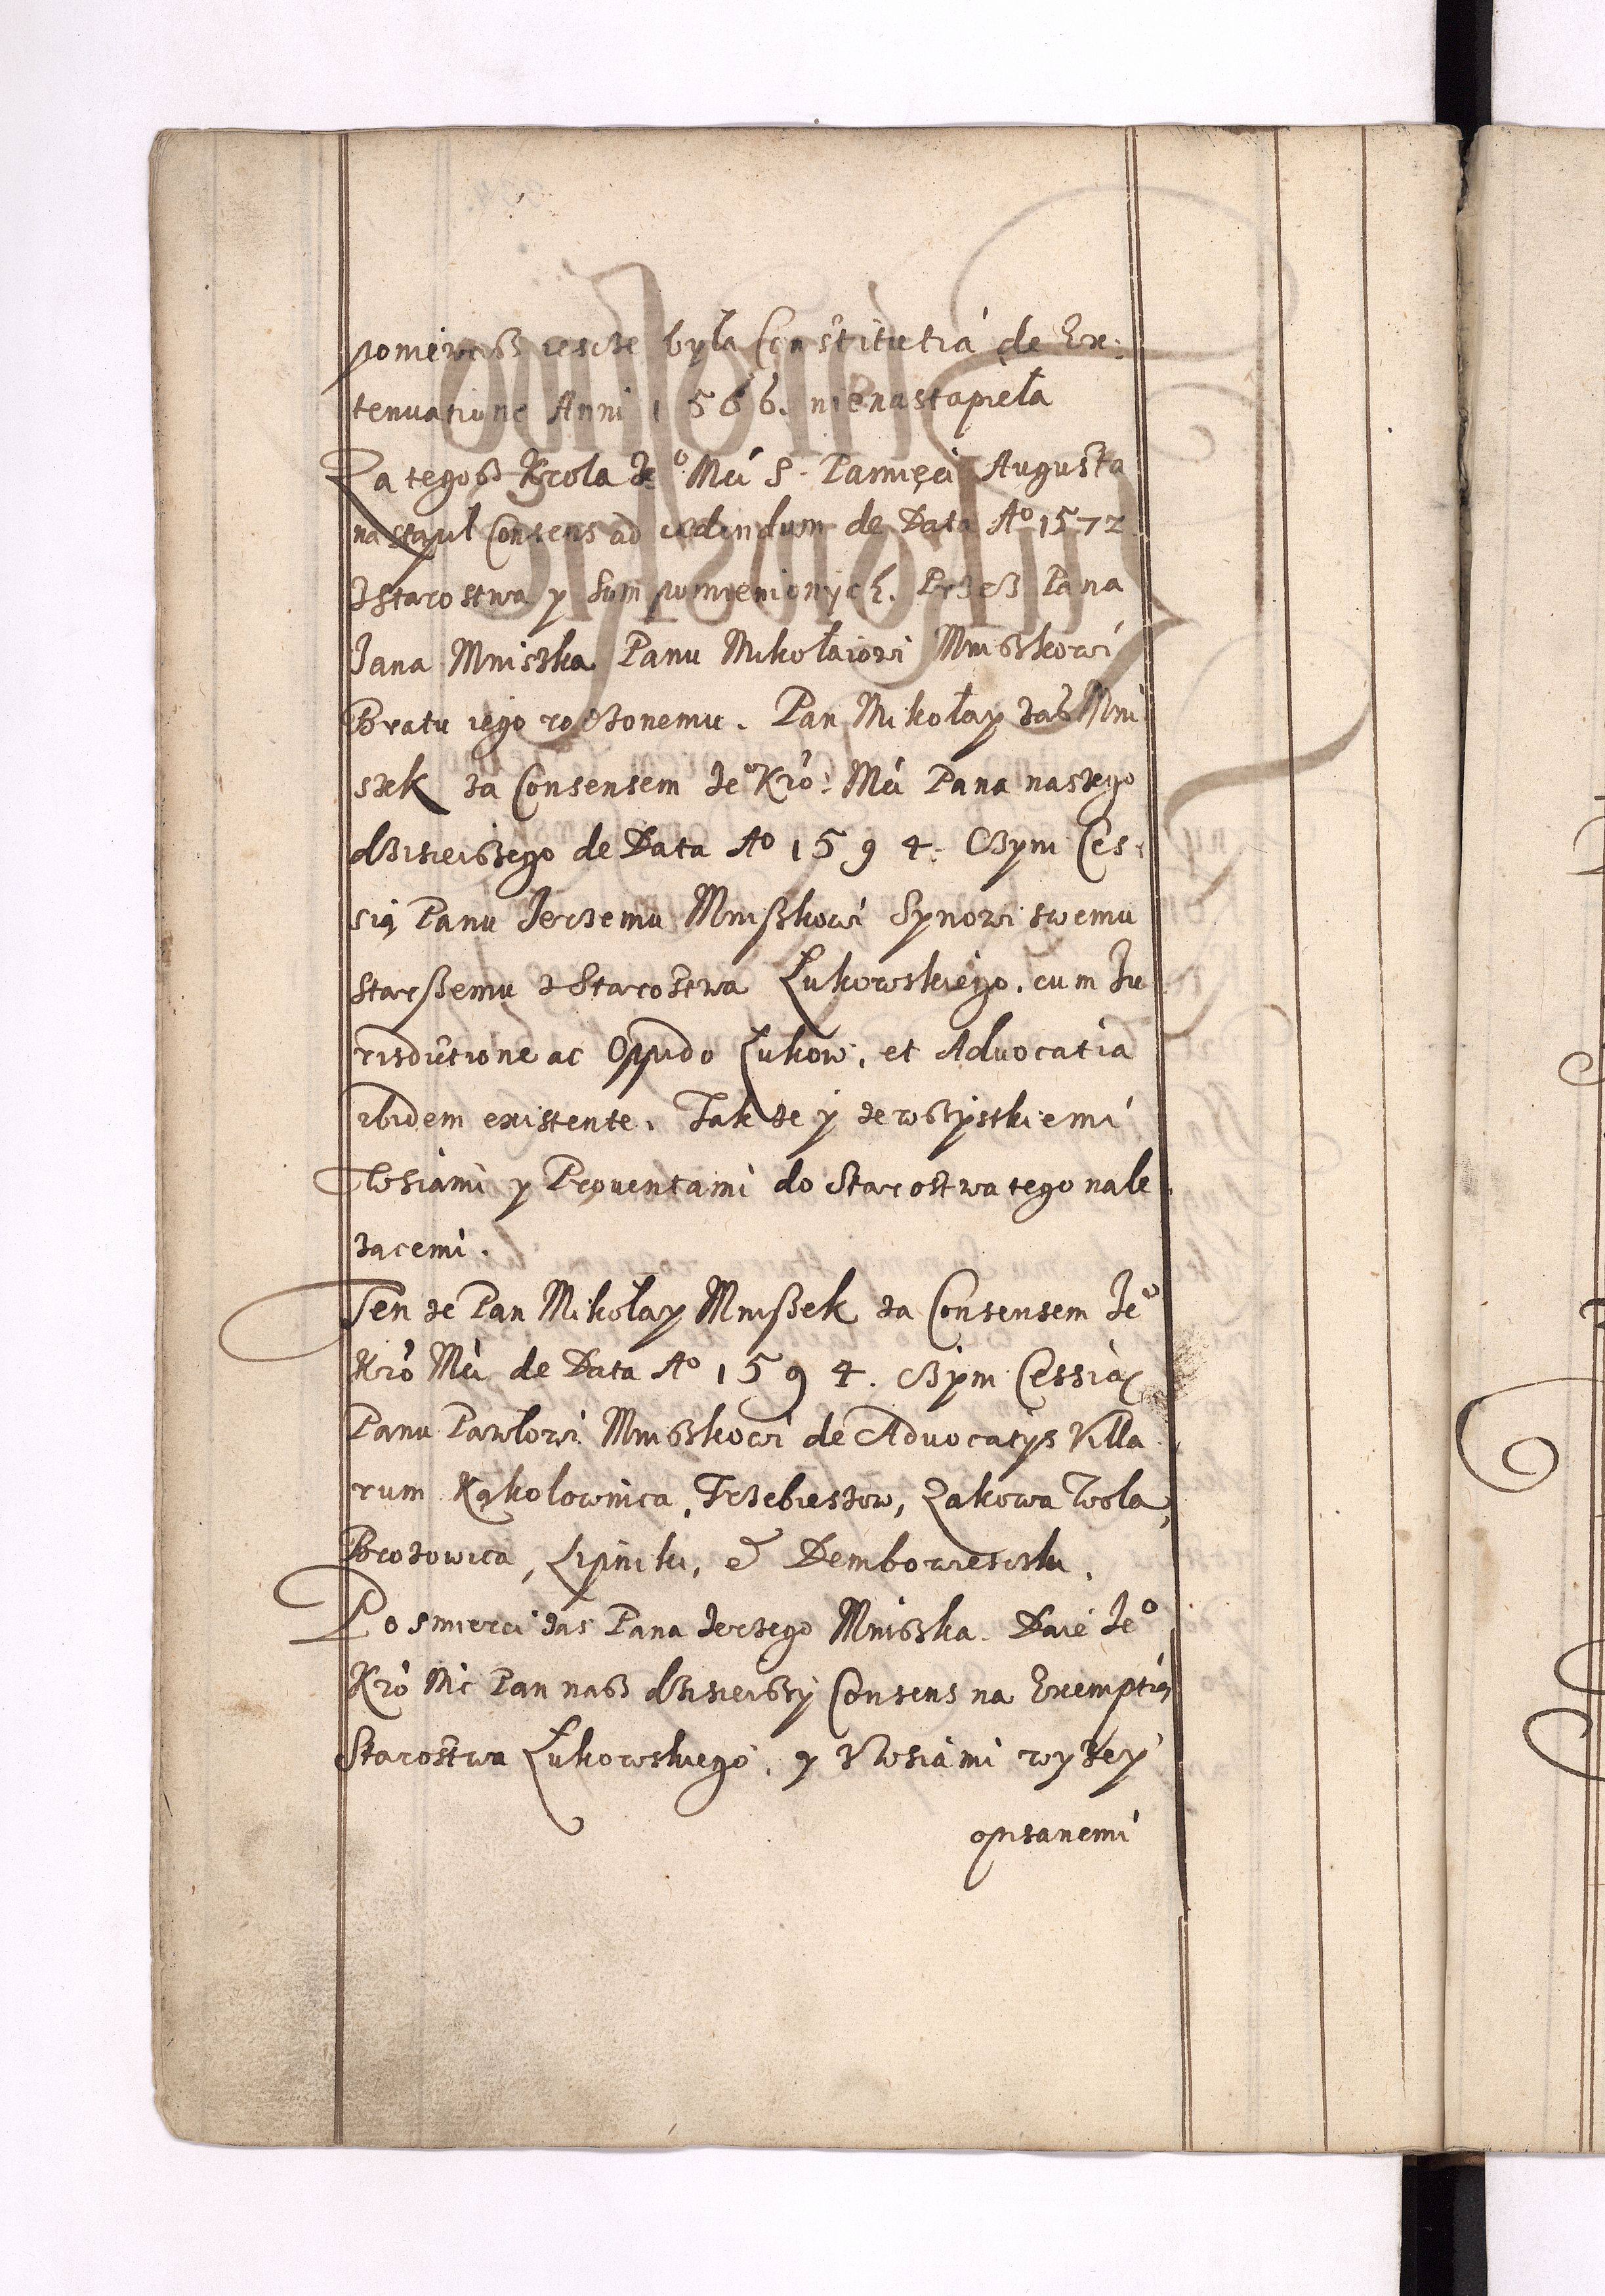 pomieważ iescze była Constitutia de Ex:
tenuatione Anni 1566. nienastąpieła
Za tegoß Krola Je⁰ Mći S. Pamięci Augusta
nastąpił Consens ad cedendum de Data A⁰ 1572.
z Starostwa y Sum pomienionych. Przeß Pana
Jana Mniszka Panu Mikołaiowi Mnißkowi
Bratu iego rodzonemu. Pan Mikołay zaß Mni
szek za Consensem Je⁰ Kró: Mći Pana naszego
dzisieißego de Data A⁰ 1594. Czym Ces:
sią Panu Jerzemu Mnißkowi Synowi swemu
starßemu z Starostwa Łukowskiego. cum Ju
risdictione ac Oppido Łukow, et Advocatia
ibidem existente. Takze y zewßystkiemi
Wsiami y Proventami do Starostwa tego nale
zacemi.
Ten ze Pan Mikołay Mnißek za Consensem Je⁰
Kró Mći de Data A⁰ 1594. Czym Cessią
Panu Pawłowi Mnißkowi de Advocatys Villa
rum Kąkolownica, Trzebieszow, Zakowa Wola,
Brozowica, Lipniki, et Dembowieszku.
Po smierci zas Pana Jerzego Mnißka. Daie Je⁰
Kró Mć Pan naß dzisieißy Consens na Exemptią
Starostwa Łukowskiego, y z Wsiami wyzey
opisanemi